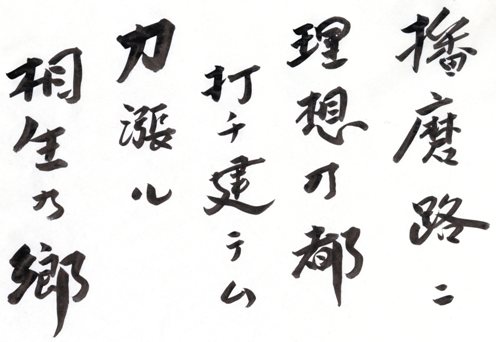 播磨路ニ
理想の都
打チ建テム
力漲ル
相生乃郷